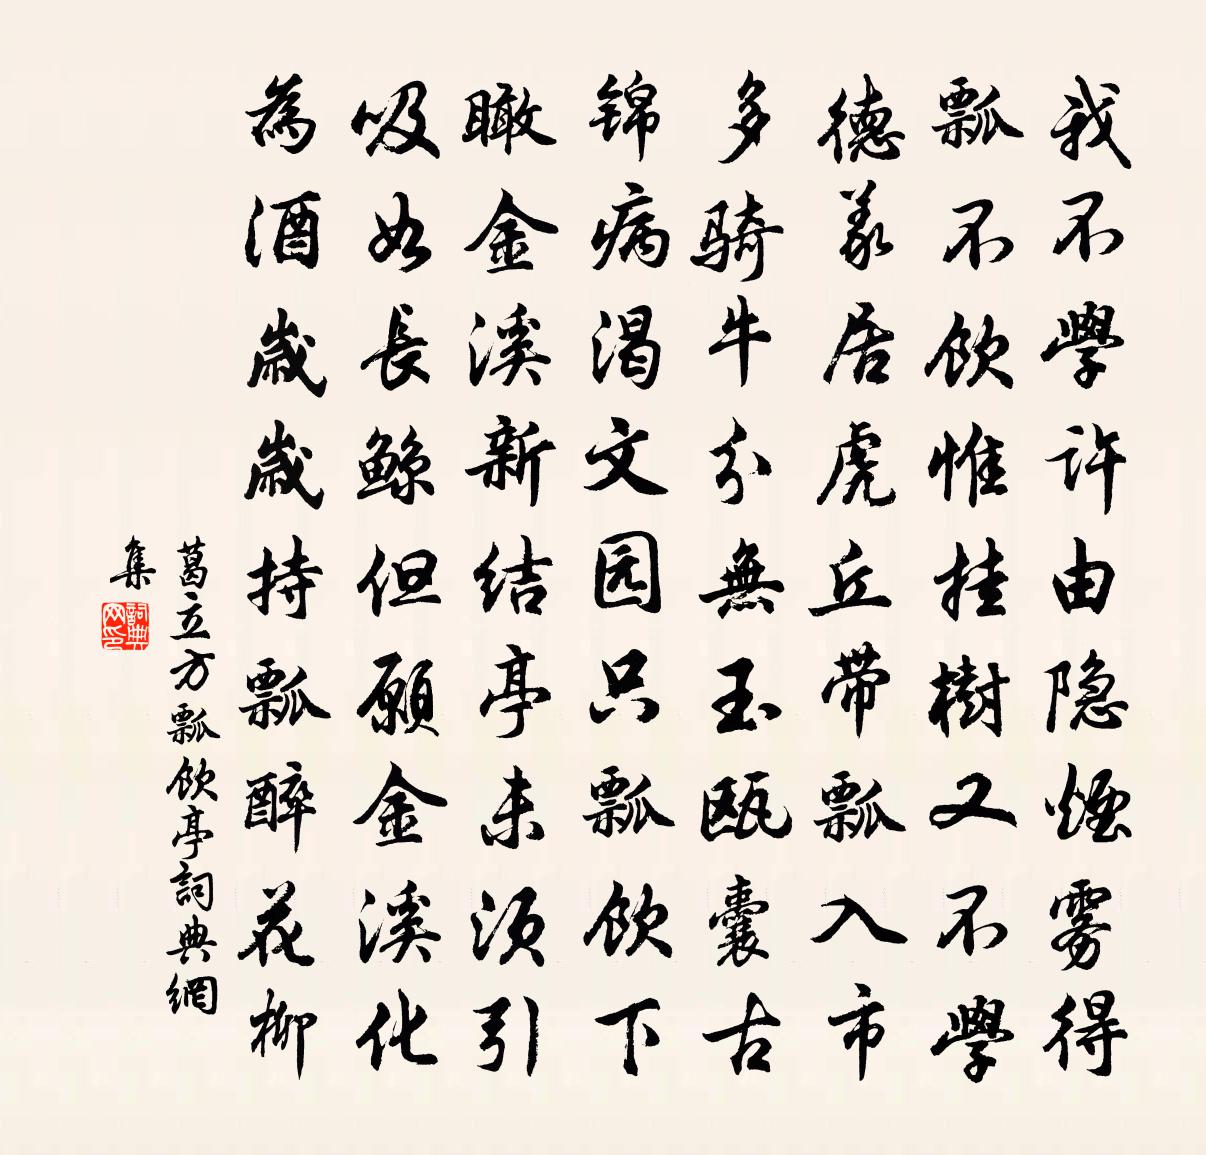 我不學許由隐煙雾得
瓢不飲惟挂樹又不學
德義居虎丘带瓢入市
多骑牛分無玉瓯囊古
锦病渴文园只瓢飲下
瞰金溪新结亭未须引
吸如長鲸但願金溪化
為酒歳歳持瓢醉花柳
葛立方瓢飲亭詞典網
集
詞典
网印